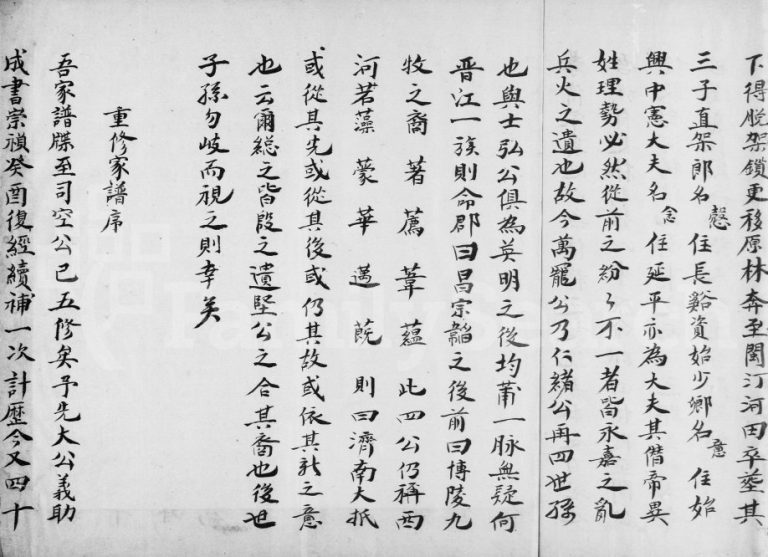 下得脫架鎖更移原林奔至閩汀河田卒塟其
三子直架郎名慤住長谿資始少卿名意住始
興中憲大夫名念住延平亦為大夫其僭帝異
姓理勢必然從前之紛〻不一者皆永嘉之亂
兵火之遺也故今萬寵公乃仁緒公再四世孫
也與士弘公俱為英明之後均莆一脉無疑何
晋江一族則命郡曰昌宗韜之後前曰博陵九
牧之裔著薦葦蘊此四公仍稱西
河若藻蒙華邁蔇則曰濟南大抵
或從其先或從其後或仍其故或依其新之意
也云爾総之皆段之遺堅公之合其裔也後世
子孫勿歧而視之則幸矣
重修家譜序
吾家譜牒至司空公已五修矣予先大公義助
成書崇禎癸酉復經續補一次計歷今又四十
FamilySearch